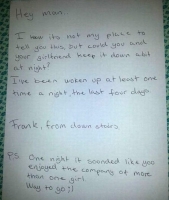 Hey man.
I know its not my place to
tell you this, but could you and
your girlfriend keep it down abit
at night?
I've been woken up at least one
time a night, the last four days.
Frank, from down stairs.
P.S. One night it sounded like you
enjoyed the company of more
than one girl.
Way to go ;)